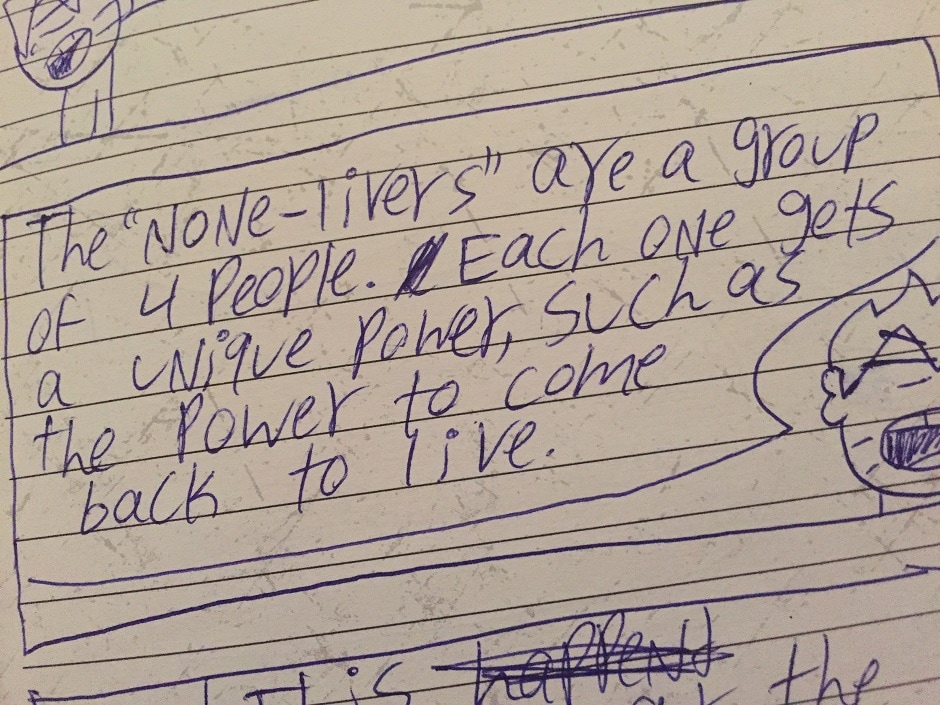 The "NoNe-livers" are a group
of 4 People. Each oNe gets
a uNique Power, such as
the Power to come
back to live.
This happeNd
the